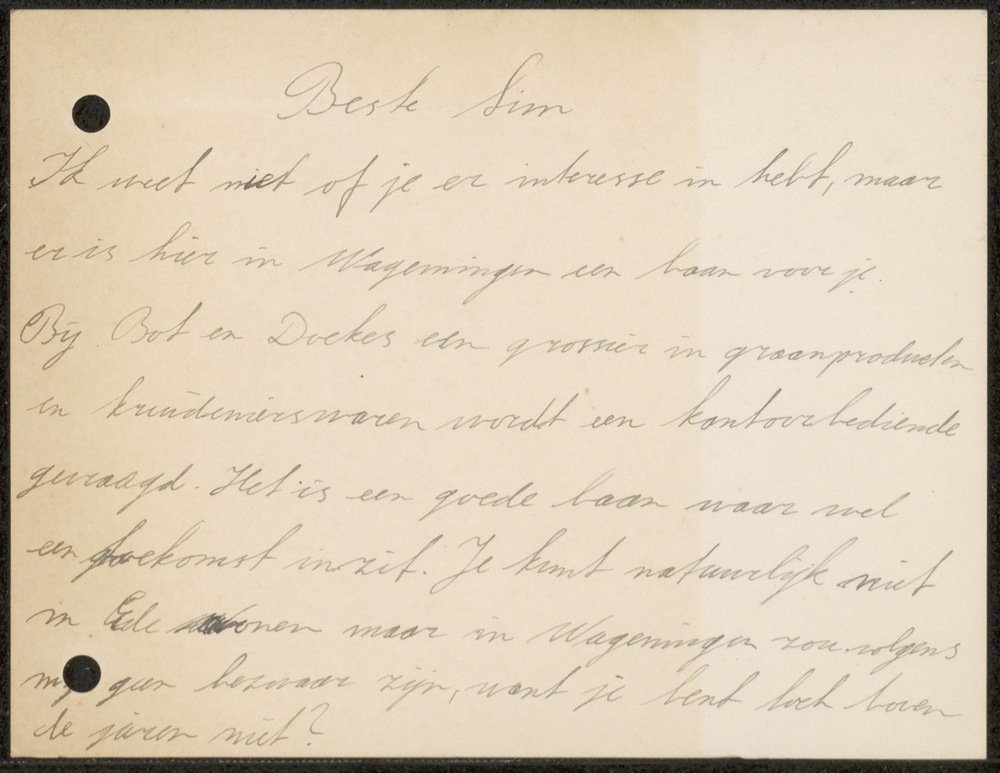 Beste Sim
Ik weet niet of je er interesse in hebt, maar
er is hier in Wageningen een baan voor je.
Bij Bot en Doekes een grossier in graanproducten
en kruidenierswaren wordt een kantoorbediende
gevraagd. Het is een goede baan waar wel
een toekomst in zit. Je kunt natuurlijk niet
in Ede wonen maar in Wageningen zou volgens
mij geen bezwaar zijn, want je bent toch boven
de jaren niet?